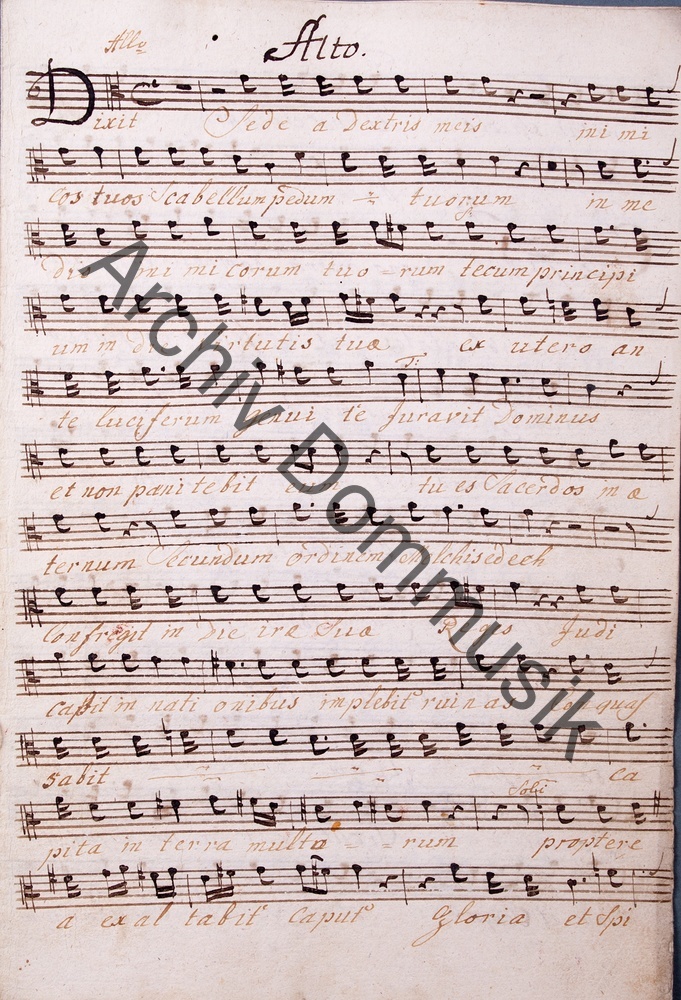 Alto.
Allo
Dixit Sede a dextris meis ini mi
cos tuos Scabellum pedum tuorum in me
dio ini mi corum tuo = rum tecum principi
um in die virtutis tuæ ex utero an
te luciferum genui te Juravit Dominus
T:
et non pænitebit eum tu es Sacerdos in æ
ternum Secundum ordinem Melchisedech
Confregit in Die iræ Suæ Reges Judi
cabit in nati onibus implebit ruinas
sabit ca
pita in terra multo = = rum proptere
Soli
a exal tabit caput Gloria et Spi
Archiv Dommusik